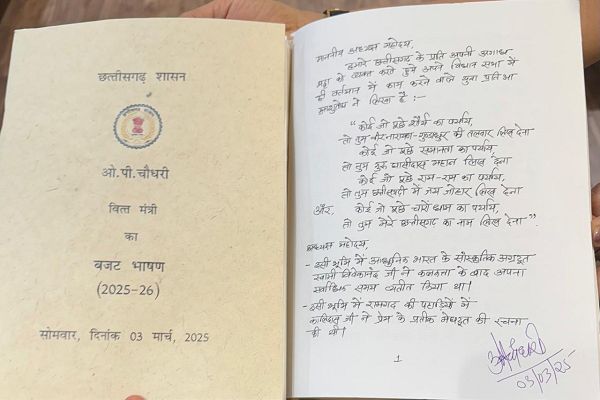 छत्तीसगढ़ शासन
ओ.पी.चौधरी
वित्त मंत्री
का
बजट भाषण
(2025-26)
सोमवार, दिनांक 03 मार्च, 2025
माननीय अध्यक्ष महोदय,
हमारे छत्तीसगढ़ के प्रति अपनी अगाध
श्रद्धा को व्यक्त करते हुये अपने विधान सभा में
ही वर्तमान में काम करने वाले युवा प्रतिभा
ने लिखा है :-
"कोई जो पूछे शौर्य का पर्याय,
तो तुम वीरनारायण की तलवार लिख देना
कोई जो पूछे समानता का पर्याय,
तो तुम गुरु घासीदास महान लिख देना
कोई जो पूछे राम-राम का पर्याय,
तो तुम छत्तीसगढ़ी में जय जोहार लिख देना
और, कोई जो पूछे चारों धाम का पर्याय,
तो तुम मेरे छत्तीसगढ़ का नाम लिख देना".
अध्यक्ष महोदय,
- इसी भूमि में आधुनिक भारत के सांस्कृतिक अग्रदूत
स्वामी विवेकानंद जी ने कलकत्ता के बाद अपना
सर्वाधिक समय व्यतीत किया था।
- इसी भूमि में रामगढ़ की पहाड़ियों में
कालिदास जी ने प्रेम के प्रतीक मेघदूत की रचना
की थी।
1
03/03/25